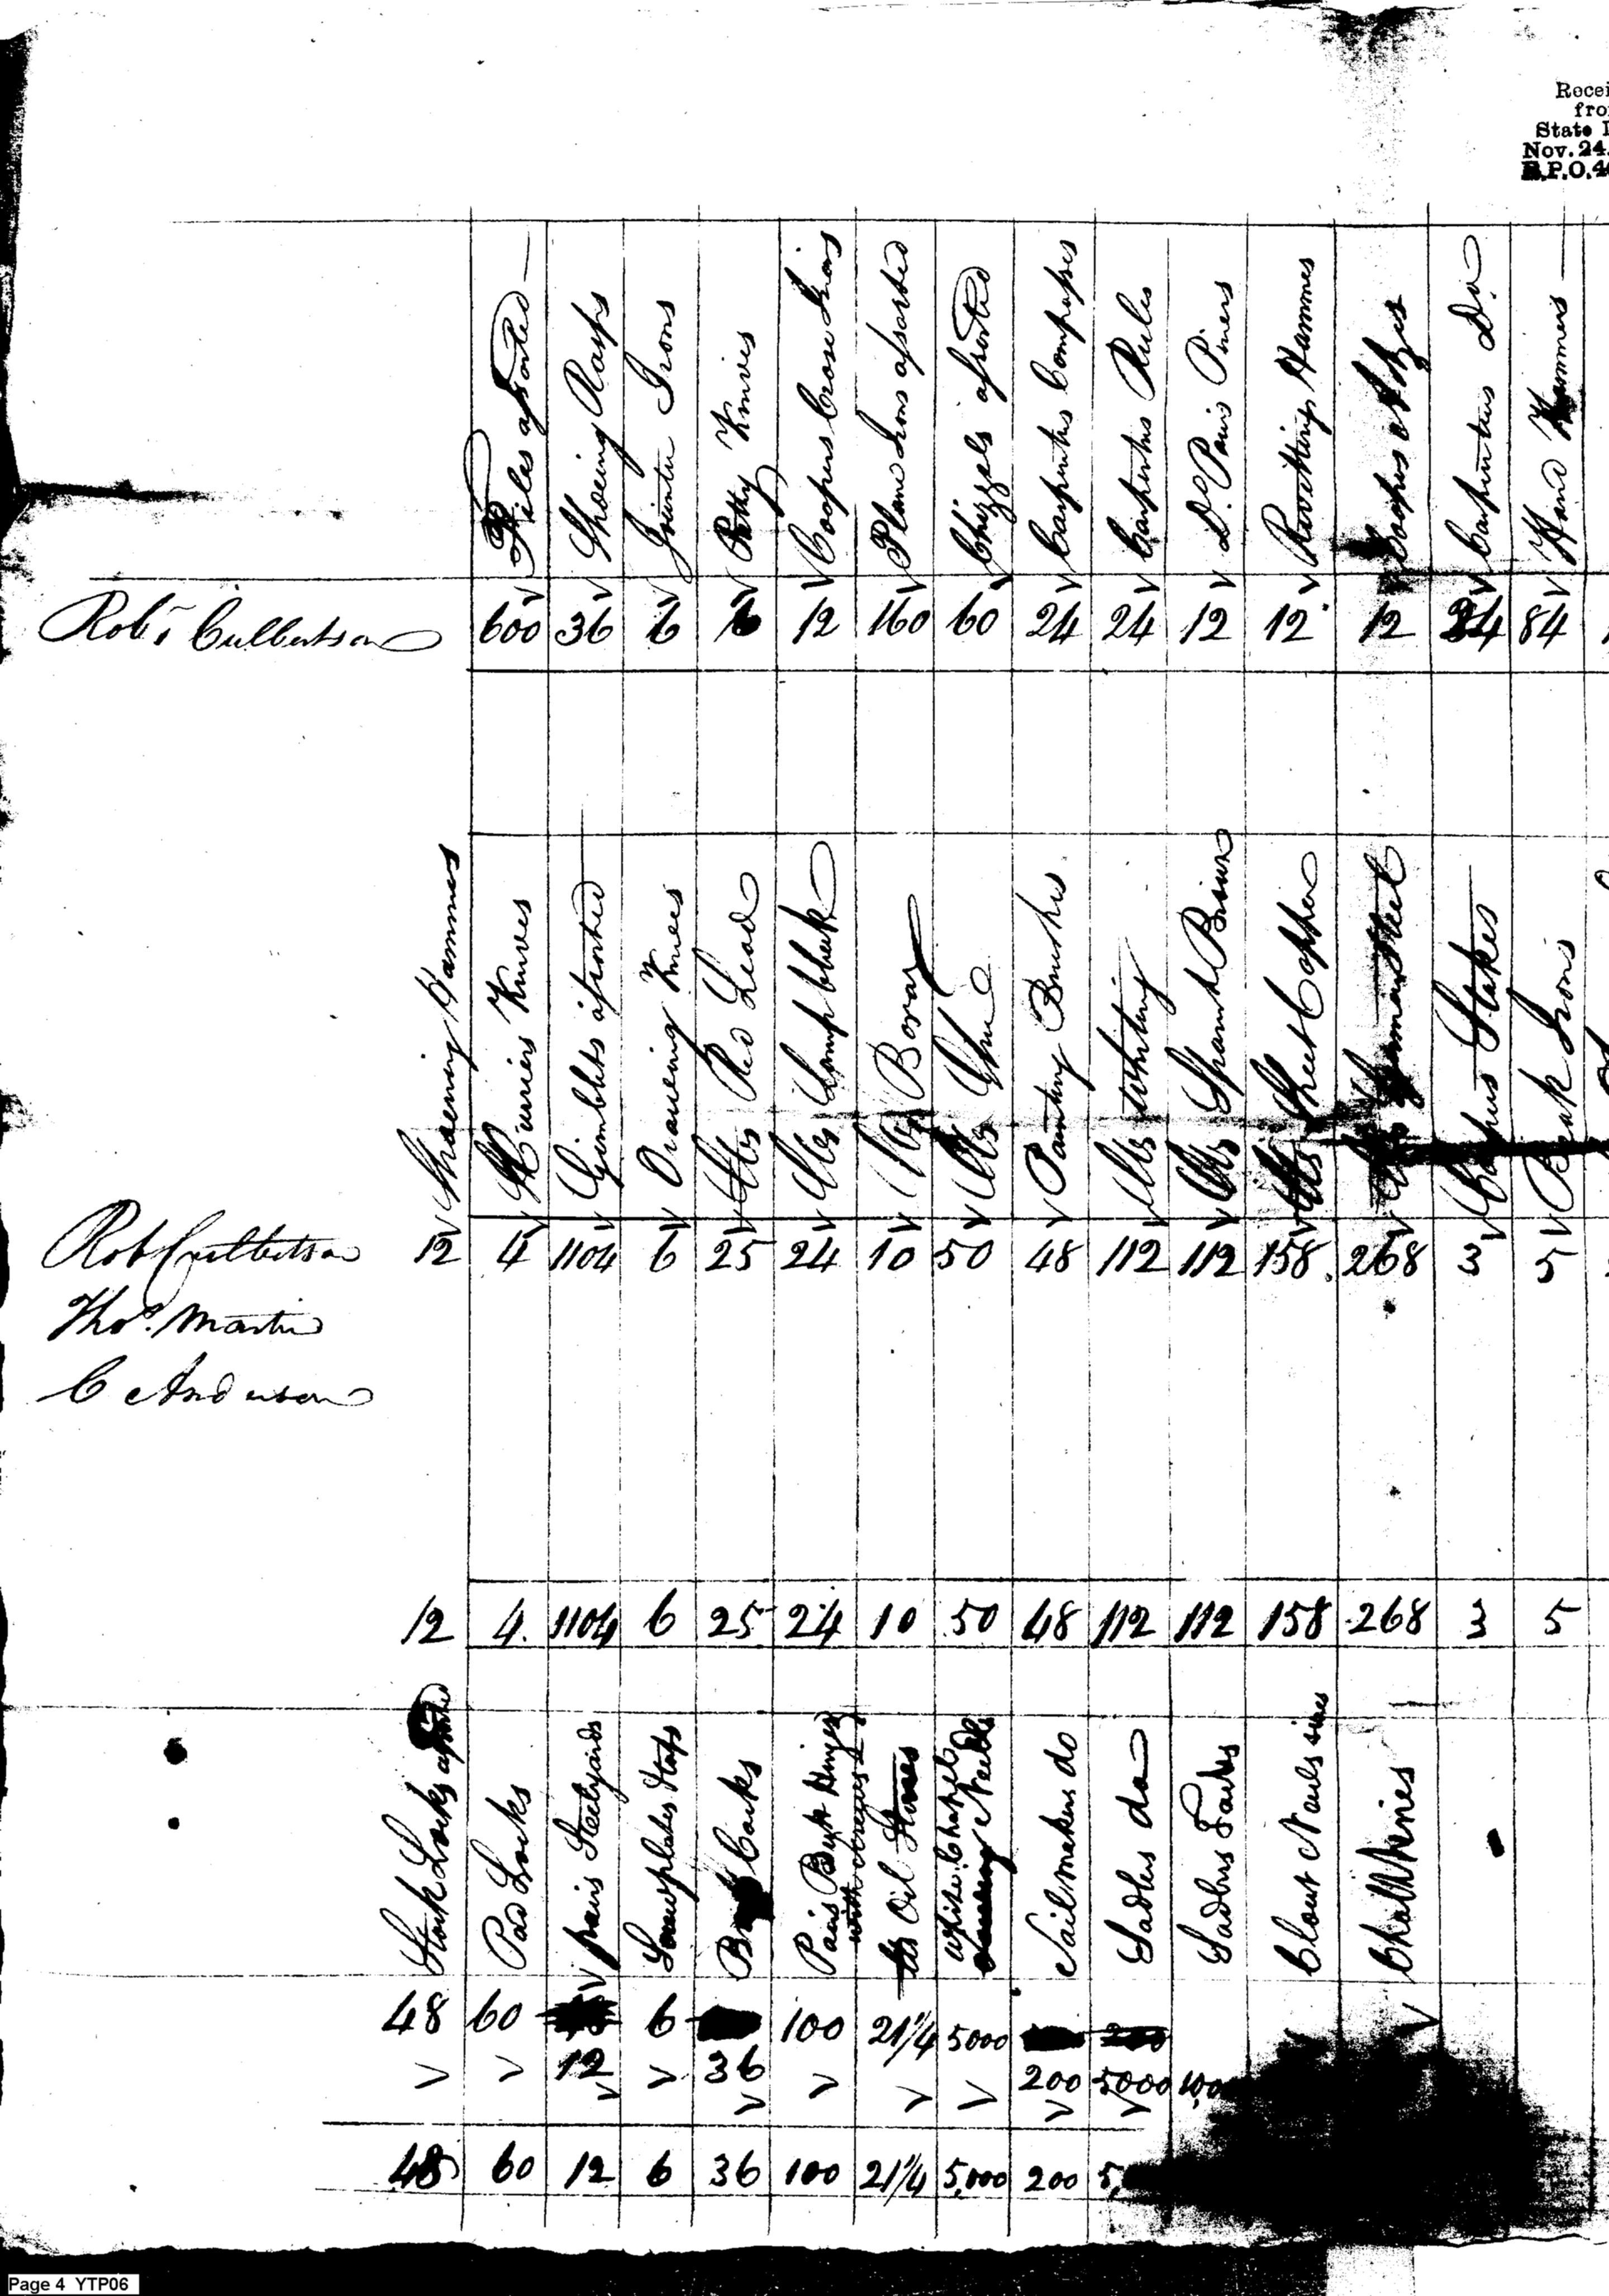 Recei
fro
State
Nov. 24.
P.O.4
Files assorted
Shoeing Rasps
Jointer Irons
Putty Knives
Coopers Croze Irons
Plane Irons assorted
Chizzels assorted
Carpenters Compasses
Carpenters Rules
Do. Pairs Pincers
Hammes
Coopers Adzes
Carpenters Do.
Hand Hammers
Robt Culbertson 600 36 6 6 12 160 60 24 24 12 12 12 24 84
Hammes
Curriers Knives
Gimblets assorted
Drawing Knives
lbs Red Lead
lbs Lampblack
lbs Borax
lbs Glue
Painting Brushes
lbs Whiting
lbs Spanish Brown
lbs Sheet Copper
German Steel
Stakes
Beak Irons
Rob Culbertson 12 4 1104 6 25 24 10 50 48 112 112 158 268 3 5
Thos. Martin
C Anderson
12 4 1104 6 25 24 10 50 48 112 112 158 268 3 5
Stock Locks assorted
Pad Locks
pairs Steelyards
Screwplates & taps
Cocks
Pairs Butt Hinges
with screws
lbs Oil Stones
White Chapel
Needles
Sailmakers do
Sadlers do
Sadlers Tacks
Clout Nails
Chalk lines
48 60 6 100 21 1/4 5000
12 36 200 5000 100
48 60 12 6 36 100 21 1/4 5,000 200 5,
Page 4 YTP06